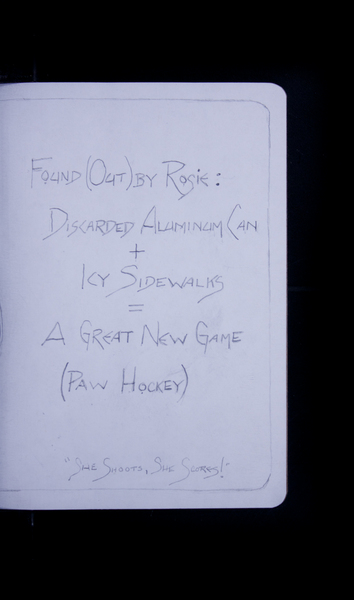 Found (Out) by Rosie:
Discarded Aluminum Can
+
Icy Sidewalks
=
A Great New Game
(Paw Hockey)
"She Shoots, She Scores!"